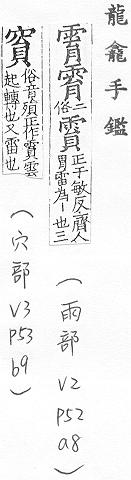 龍龕手鑑
二俗霣正于敏反齊人
胃雷為丨也三
(雨部 V2 P52 a8)
俗音正作霣雲
起轉也又雷也
(穴部 V3 P53 b9)